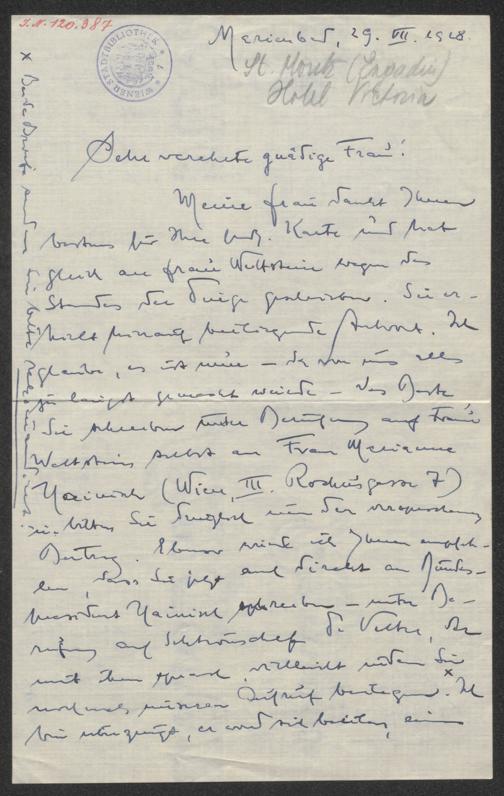 I.N. 120.387
WIENER STADTBIBLIOTHEK
Marienbad, 29. VII. 1928.
St. Moritz (Engadin)
Hotel Victoria
Sehr verehrte gnädige Frau!
Meine Frau dankt Ihnen
bestens für Ihre Karte und hat
gleich an Frau Wettstein wegen des
Standes der Dinge geschrieben. Sie er-
hielt hierauf beiliegende Antwort. Ich
glaube, es ist nun – da von uns alles
gemacht wurde – das Beste
Sie schreiben unter Berufung auf Frau
Wettstein selbst an Frau Marianne
Hainisch (Wien, III. Rochusgasse 7)
u. bitten Sie dringlich um den versprochenen
Beitrag. Ebenso würde ich Ihnen empfeh-
len, dass Sie jetzt auch direkt an Bundes-
präsident Hainisch schreiben – unter Be-
rufung auf Sektionschef der
mit ihm sprach, vielleicht indem Sie
nochmals unseren Aufruf beilegen. x Ich
bin überzeugt, er wird sich beeilen, einen
x